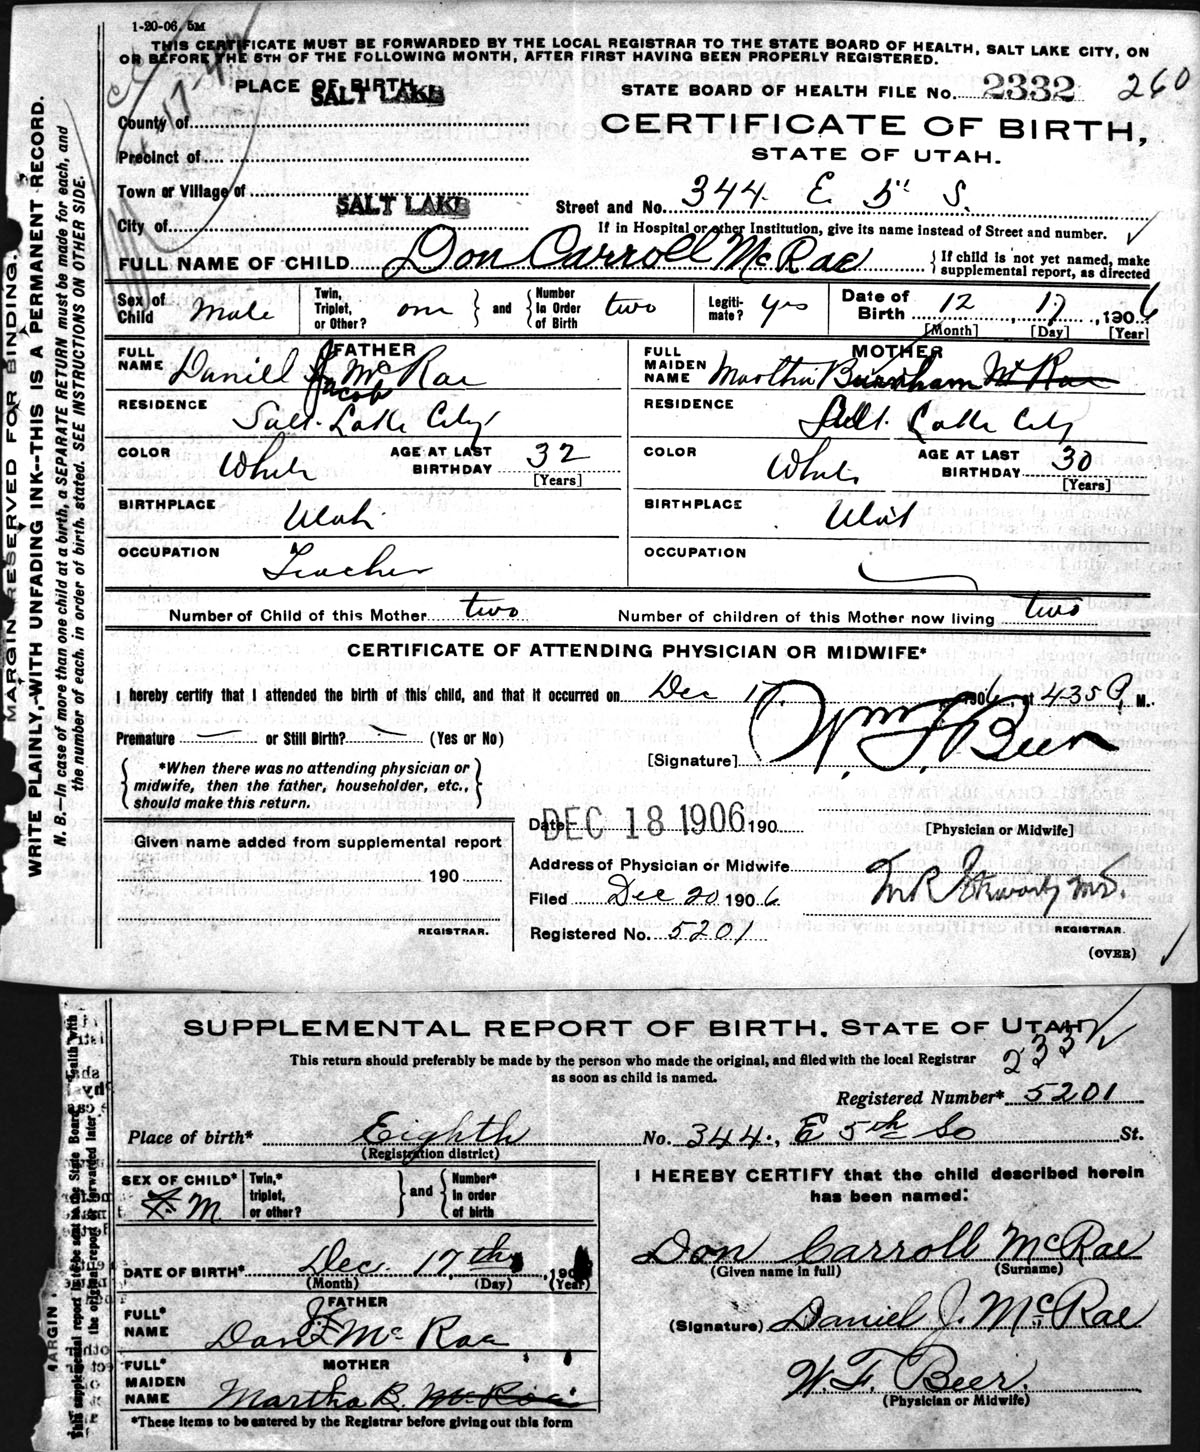 1-20-06. 5M
THIS CERTIFICATE MUST BE FORWARDED BY THE LOCAL REGISTRAR TO THE STATE BOARD OF HEALTH, SALT LAKE CITY, ON
OR BEFORE THE 5TH OF THE FOLLOWING MONTH, AFTER FIRST HAVING BEEN PROPERLY REGISTERED.
MARGIN RESERVED FOR BINDING.
WRITE PLAINLY, WITH UNFADING INK--THIS IS A PERMANENT RECORD.
N. B.—In case of more than one child at a birth, a SEPARATE RETURN must be made for each, and
the number of each, in order of birth, stated. SEE INSTRUCTIONS ON OTHER SIDE.
PLACE OF BIRTH
STATE BOARD OF HEALTH FILE No. 2332 260
SALT LAKE
County of
CERTIFICATE OF BIRTH,
Precinct of
STATE OF UTAH.
Town or Village of
Street and No. 344 E 5" S.
City of SALT LAKE
If in Hospital or other Institution, give its name instead of Street and number.
FULL NAME OF CHILD Don Carroll McRae
{ If child is not yet named, make supplemental report, as directed
Sex of Child Male
Twin, Triplet, or Other? one } and { Number In Order of Birth two
Legitimate? yes
Date of Birth 12 17, 1906
[Month] [Day] [Year]
FATHER
FULL NAME Daniel J McRae
Jacob
RESIDENCE Salt Lake City
COLOR White AGE AT LAST BIRTHDAY 32
[Years]
BIRTHPLACE Utah
OCCUPATION Teacher
MOTHER
FULL MAIDEN NAME Martha Burnham McRae
RESIDENCE Salt Lake City
COLOR White AGE AT LAST BIRTHDAY 30
[Years]
BIRTHPLACE Utah
OCCUPATION
Number of Child of this Mother two Number of children of this Mother now living two
CERTIFICATE OF ATTENDING PHYSICIAN OR MIDWIFE*
I hereby certify that I attended the birth of this child, and that it occurred on Dec 17, 1906, at 435 P. M.
Premature — or Still Birth? — (Yes or No)
[Signature] Wm F Beer
*When there was no attending physician or
midwife, then the father, householder, etc.,
should make this return.
Date DEC 18 1906 190
[Physician or Midwife]
Given name added from supplemental report
190
REGISTRAR.
Address of Physician or Midwife
Filed Dec 20 1906
Registered No. 5201
REGISTRAR.
(OVER)
SUPPLEMENTAL REPORT OF BIRTH, STATE OF UTAH
This return should preferably be made by the person who made the original, and filed with the local Registrar
as soon as child is named.
2332
Registered Number* 5201
Place of birth* Eighth No. 344, E 5th So St.
(Registration district)
SEX OF CHILD* F. M.
Twin,* triplet, or other? } and { Number* In order of birth
DATE OF BIRTH* Dec. 17th, 190
(Month) (Day) (Year)
FATHER
FULL* NAME Dan J McRae
MOTHER
FULL* MAIDEN NAME Martha B. McRae
*These items to be entered by the Registrar before giving out this form
I HEREBY CERTIFY that the child described herein
has been named:
Don Carroll McRae
(Given name in full) (Surname)
(Signature) Daniel J. McRae
W. F. Beer.
(Physician or Midwife)